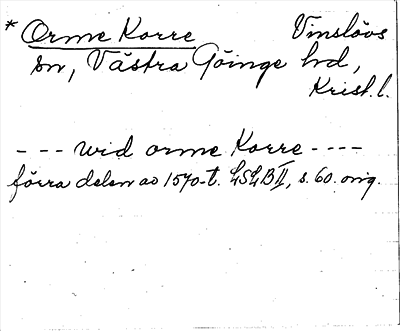 * Orme Korre Vinslövs
sn, Västra Göinge hd,
Krist. l.
- - - wid orme Korre - - - -
förra delen av 1570-t. LSLB II, s. 60. orig.